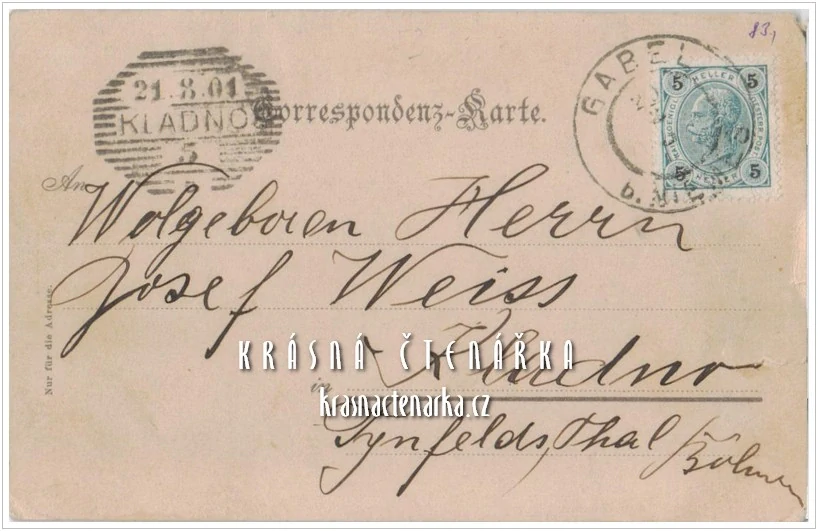 83,
21.8.01
KLADNO
5
GABEL
5 HELLER 5
5 HELLER 5
Correspondenz-Karte.
An
Wolgeboren Herrn
Josef Weiss
KRÁSNÁ ČTENÁŘKA
in Kladno
krasnactenarka.cz
Böhmen
Nur für die Adresse.